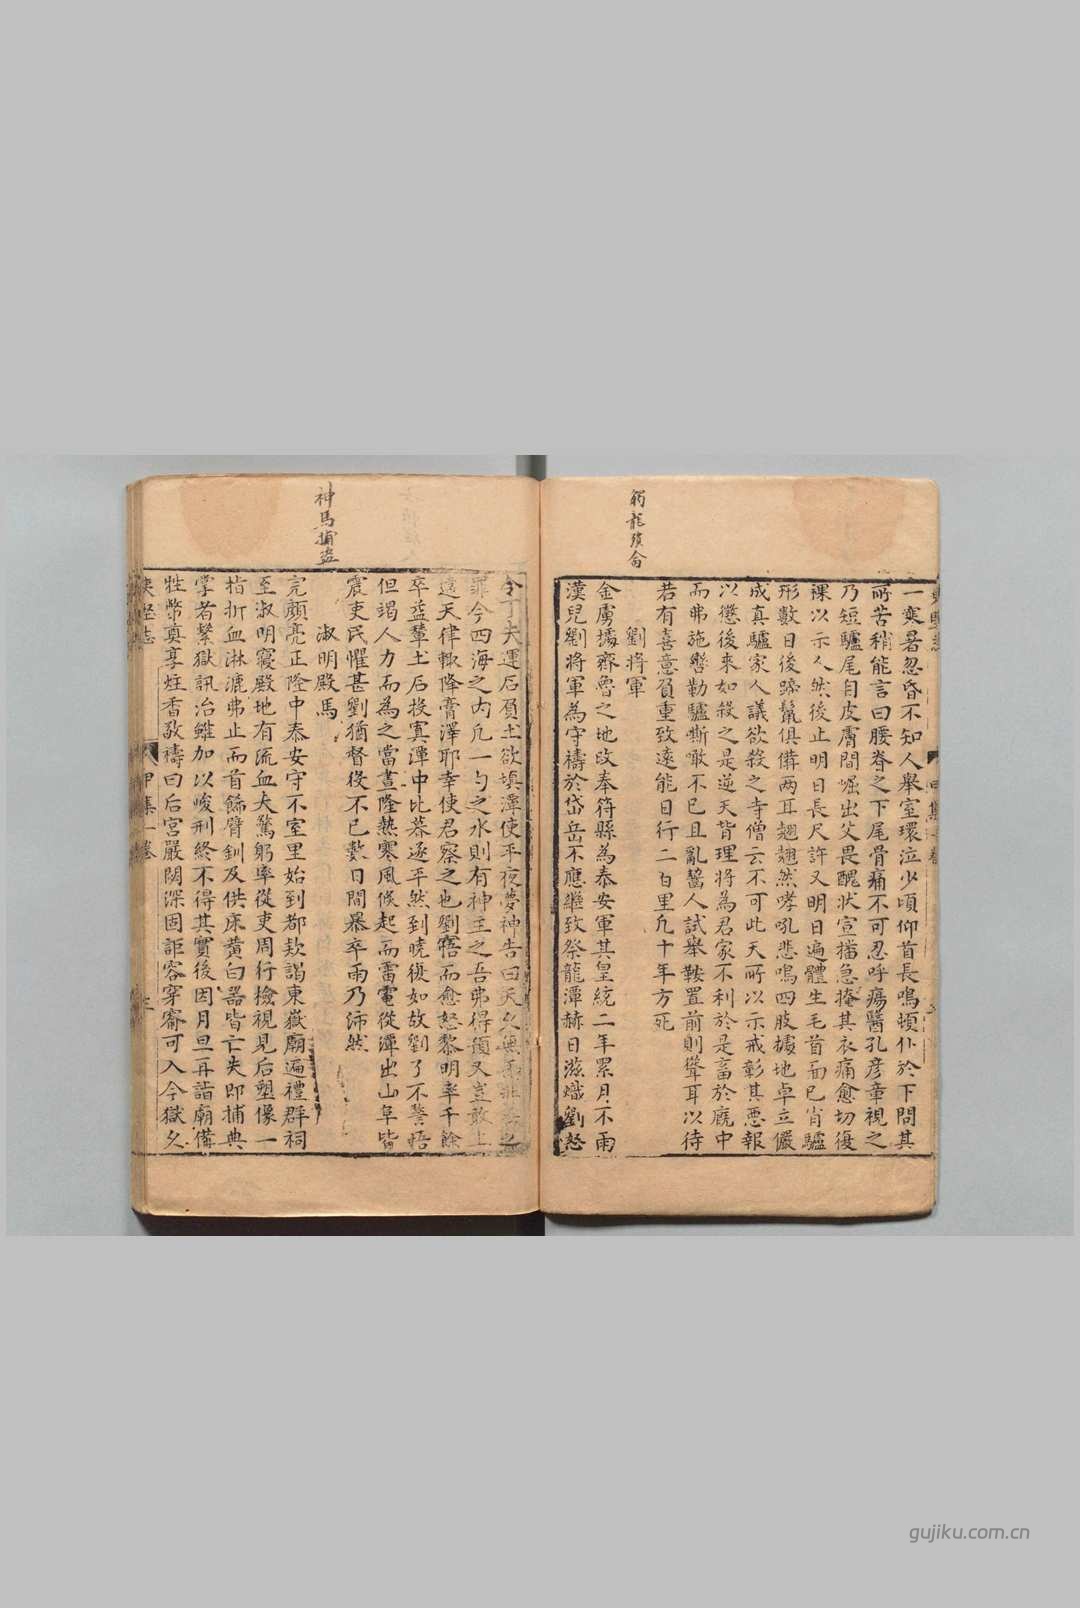 觸龍殞命
一爽暑忽昏不知人舉室環泣少頃仰首長鳴頓仆於下問其
所苦稍能言曰腰脊之下尾骨痛不可忍呼瘍醫孔彦章視之
乃短驢尾自皮膚間崛出父畏醜狀宣揚急掩其衣痛愈切復
裸以示人然後止明日長尺許又明日遍體生毛首面已肖驢
形數日後蹄鬣俱備兩耳翹翹然哮吼悲鳴四肢據地卓立儼
成真驢家人議欲殺之寺僧云不可此天所以示戒彰其惡報
以懲後來如殺之是逆天背理將為君家不利於是畜於廐中
而弗施轡勒驢嘶噉不已且亂齧人試舉鞍置前則聳耳以待
若有喜意負重致遠能日行二百里凡十年方死
劉將軍
金虜據齊魯之地改奉符縣為泰安軍其皇統二年累月不雨
漢兒劉將軍為守禱於岱岳不應繼致祭龍潭赫日滋熾劉怒
神馬捕盜
令丁夫運石負土欲填潭使平夜夢神告曰天久無雨非吾之
罪今四海之内凡一勺之水則有神主之吾弗得顓又豈敢上
違天律輙降膏澤耶幸使君察之也劉寤而愈怒黎明率千餘
卒益輦土石投寘潭中比暮遂平然到曉復如故劉了不警悟
但竭人力而為之當晝隆熱寒風倏起而雷電從潭出山阜皆
震吏民懼甚劉猶督役不已數日間暴卒雨乃沛然
淑明殿馬
完顔亮正隆中泰安守不室里始到都欵謁東嶽廟遍禮群祠
至淑明寢殿地有流血大驚躬率從吏周行檢視見后塑像一
指折血淋漉弗止而首餙臂釧及供床黄白器皆亡失即捕典
掌者繫獄訊治雖加以峻刑終不得其實後因月旦再詣廟備
牲幣奠享炷香致禱曰后宮嚴閟深固詎容穿窬可入今獄久
夷堅志
甲集一卷